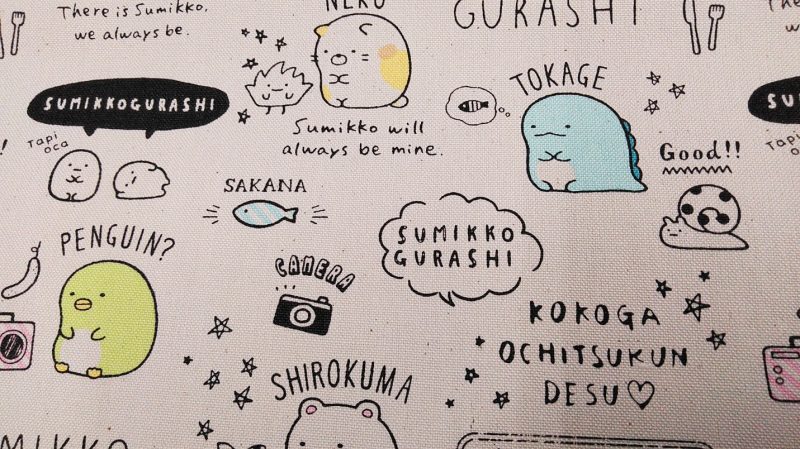 There is Sumikko,
we always be.
NEKO
GURASHI
SUMIKKOGURASHI
Tapi
oca
Sumikko will
always be mine.
TOKAGE
Good!!
SAKANA
PENGUIN?
SUMIKKO
GURASHI
CAMERA
KOKOGA
OCHITSUKUN
DESU♡
SHIROKUMA